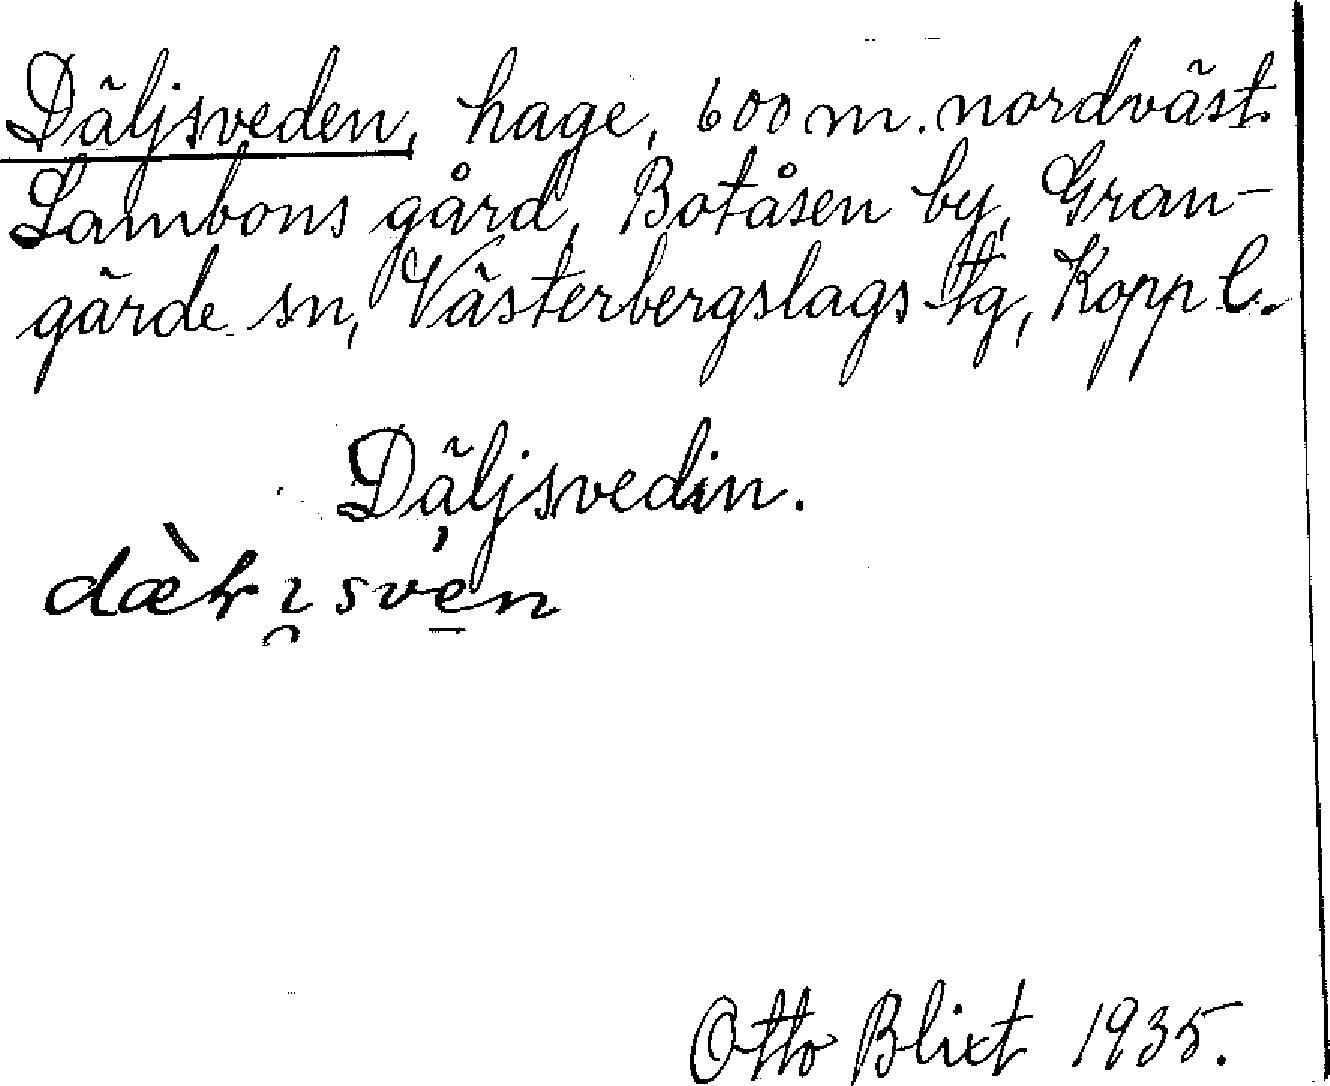 Däljsveden, hage, 600 m. nordväst.
Lambons gård, Botåsen by, Gran-
gärde sn, Västerbergslags tg, Kopp l.
Däljsvedin.
Otto Blixt 1935.